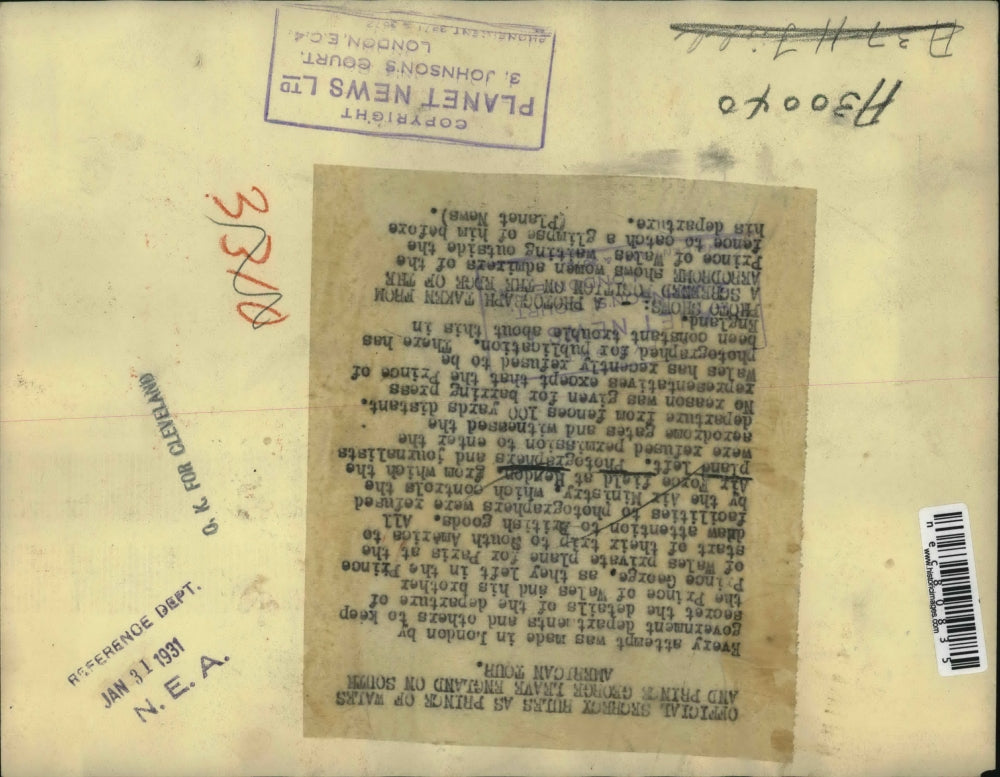 OFFICIAL SECRECY RULES AS PRINCE OF WALES
AND PRINCE GEORGE LEAVE ENGLAND ON SOUTH
AMERICAN TOUR.
Every attempt was made in London by
government departments and others to keep
secret the details of the departure of
the Prince of Wales and his brother
Prince George, as they left in the Prince
of Wales private plane for Paris at the
start of their trip to South America to
draw attention to British goods. All
facilities to photographers were refused
by the Air Ministry, which controls the
Air Force field at Hendon from which the
plane left. Photographers and journalists
were refused permission to enter the
aerodrome gates and witnessed the
departure from fences 100 yards distant.
No reason was given for barring press
representatives except that the Prince of
Wales has recently refused to be
photographed for publication. There has
been constant trouble about this in
England.
PHOTO SHOWS: - A PHOTOGRAPH TAKEN FROM
A SCREENED POSITION ON THE EDGE OF THE
AERODROME shows women admirers of the
Prince of Wales waiting outside the
fence to catch a glimpse of him before
his departure. (Planet News).
COPYRIGHT
PLANET NEWS LTD
3, JOHNSON'S COURT.
LONDON, E.C.4.
A30040
3310
O. K. FOR CLEVELAND
REFERENCE DEPT.
JAN 31 1931
N. E. A.
www.historicimages.com